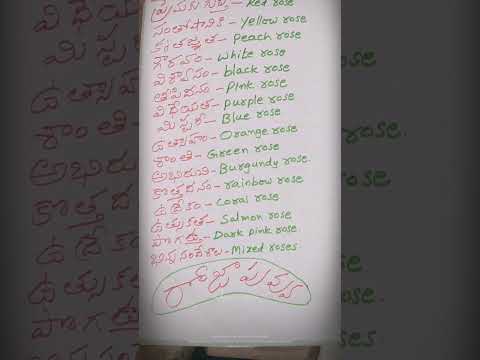 ప్రేమకు గుర్తు - Red rose
సంతోషానికి - Yellow rose
కృతజ్ఞత - Peach rose
గౌరవం - White rose
విశ్వాసం - black rose
- Pink rose
విధేయత - Purple rose
మిస్టరీ - Blue rose
ఉత్సాహం - Orange rose
శాంతి - Green rose
అభిరుచి - Burgundy rose.
కొత్తదనం - rainbow rose
ఉద్రేకం - Coral rose
ఉత్సుకత - Salmon rose
పొగడ్త - Dark pink rose.
భిన్న సందేశాలు - Mixed roses
రోజా పువ్వు